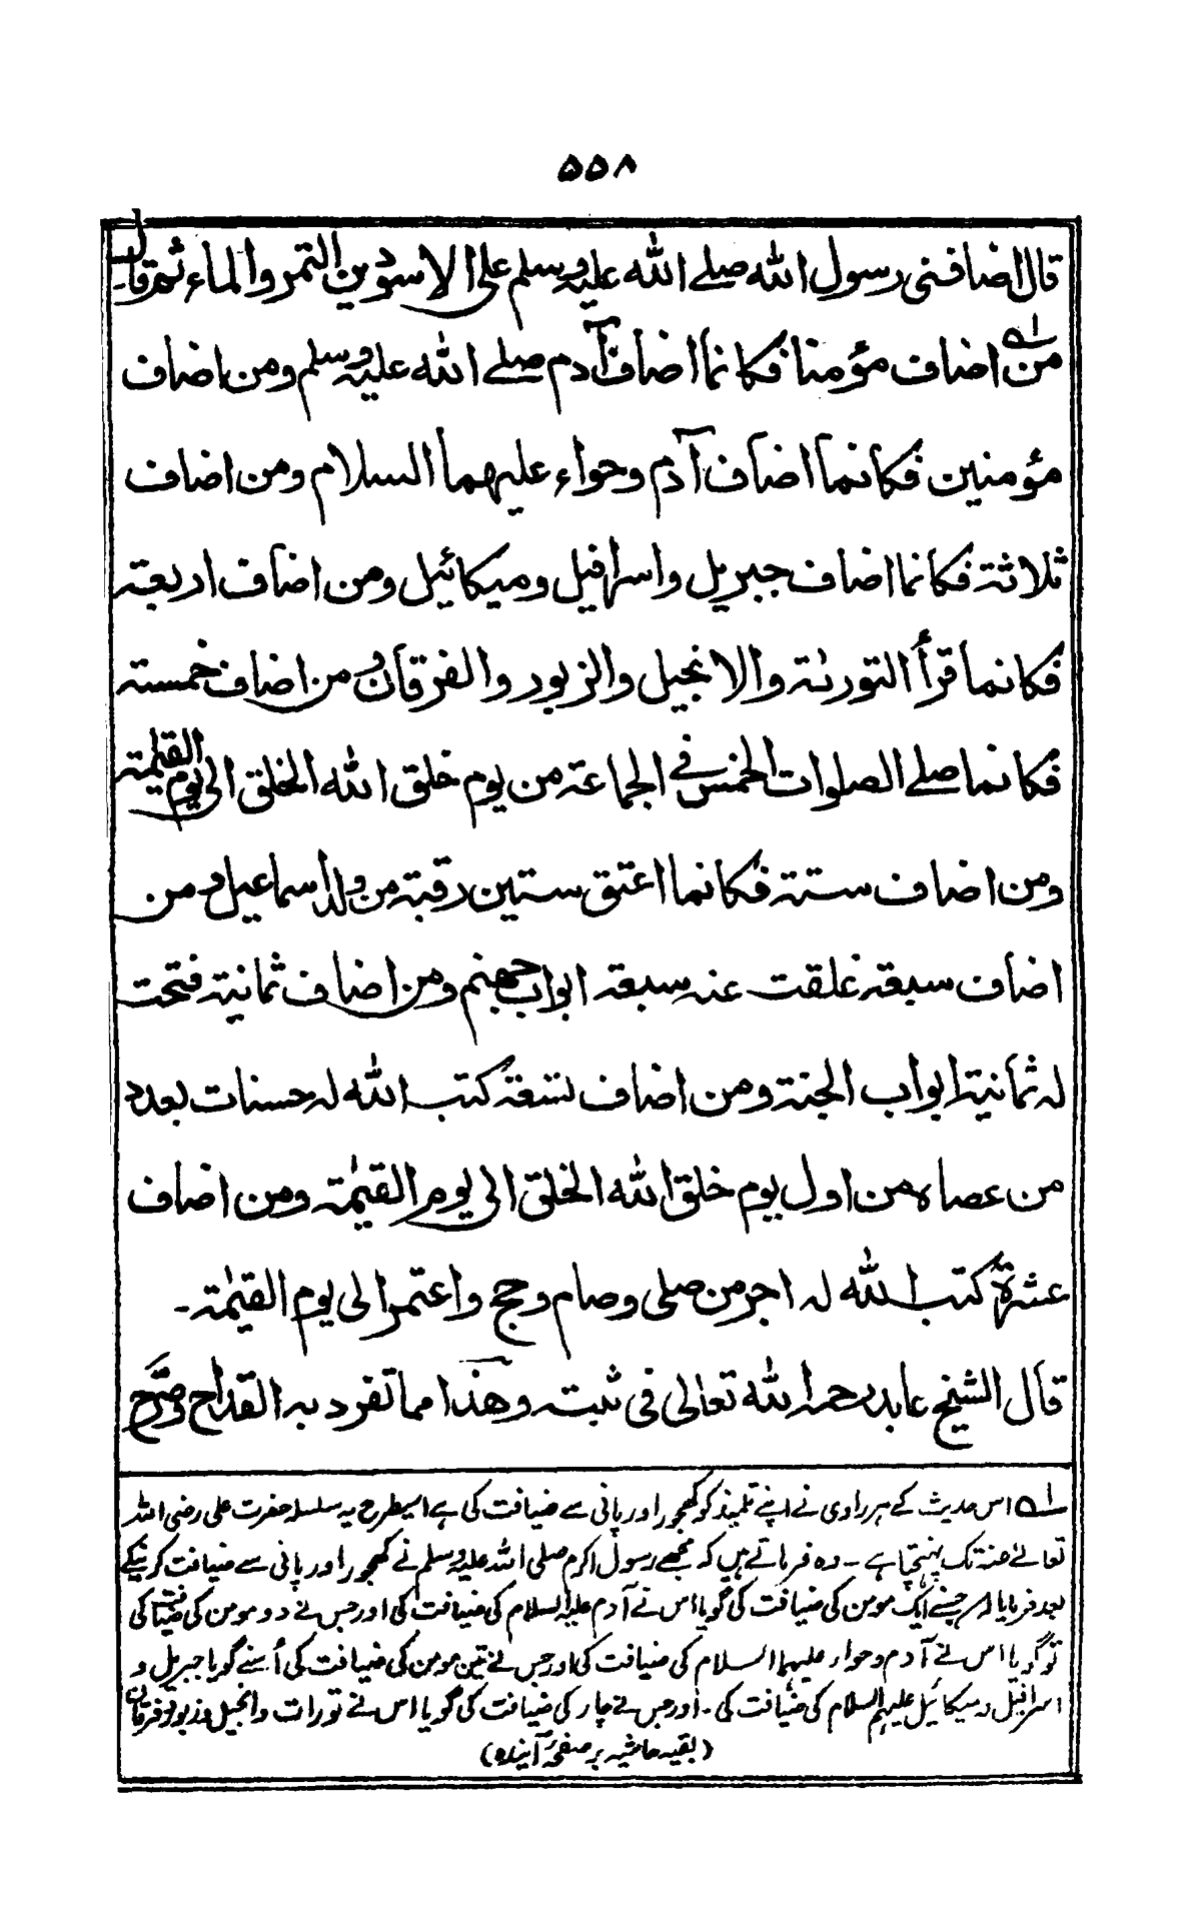 ۵۵۸
قال اضافنى رسول الله صلے الله عليه وسلم على الاسودين التمر والماء ثم قال
من اضاف مؤمنا فكانما اضاف آدم صلے الله عليه وسلم ومن اضاف
مؤمنين فكانما اضاف آدم وحواء عليهما السلام ومن اضاف
ثلاثة فكانما اضاف جبريل واسرافيل وميكائيل ومن اضاف اربعة
فكانما قرأ التورىٰة والانجيل والزبور والفرقان ومن اضاف خمسة
فكانما صلے الصلوات الخمس فے الجماعة من يوم خلق الله الخلق الى يوم القيٰمة
ومن اضاف ستة فكانما اعتق ستين رقبة من ولد اسماعيل ومن
اضاف سبعة غلقت عنه سبعة ابواب جهنم ومن اضاف ثمانية فتحت
له ثمانية ابواب الجنة ومن اضاف تسعة كتب الله له حسنات بعدد
من عصاه من اول يوم خلق الله الخلق الى يوم القيٰمة ومن اضاف
عشرة كتب الله له اجر من صلى وصام وحج واعتمر الى يوم القيٰمة۔
قال الشيخ عابد رحمه الله تعالى فى ثبته وهذا مما تفرد به القداح وصرّح
لہ اس حدیث کے ہر راوی نے اپنے تلمیذ کو کھجور اور پانی سے ضیافت کی ہے اسیطرح یہ سلسلہ حضرت علی رضی اللہ
تعالےٰ عنہ تک پہنچتا ہے ۔ وہ فرماتے ہیں کہ مجھے رسول اکرم صلی اللہ علیہ وسلم نے کھجور اور پانی سے ضیافت کرنیکے
بعد فرمایا کہ جسنے ایک مومن کی ضیافت کی گویا اس نے آدم علیہ السلام کی ضیافت کی اور جس نے دو مومن کی ضیافت کی
تو گویا اس نے آدم وحواء علیہما السلام کی ضیافت کی اور جس نے تین مومن کی ضیافت کی اُسنے گویا جبریل و
اسرافیل و میکائیل علیہم السلام کی ضیافت کی۔ اور جس نے چار کی ضیافت کی گویا اس نے تورات و انجیل و زبور و فرقان
(بقیہ حاشیہ بر صفحۂ آیندہ)